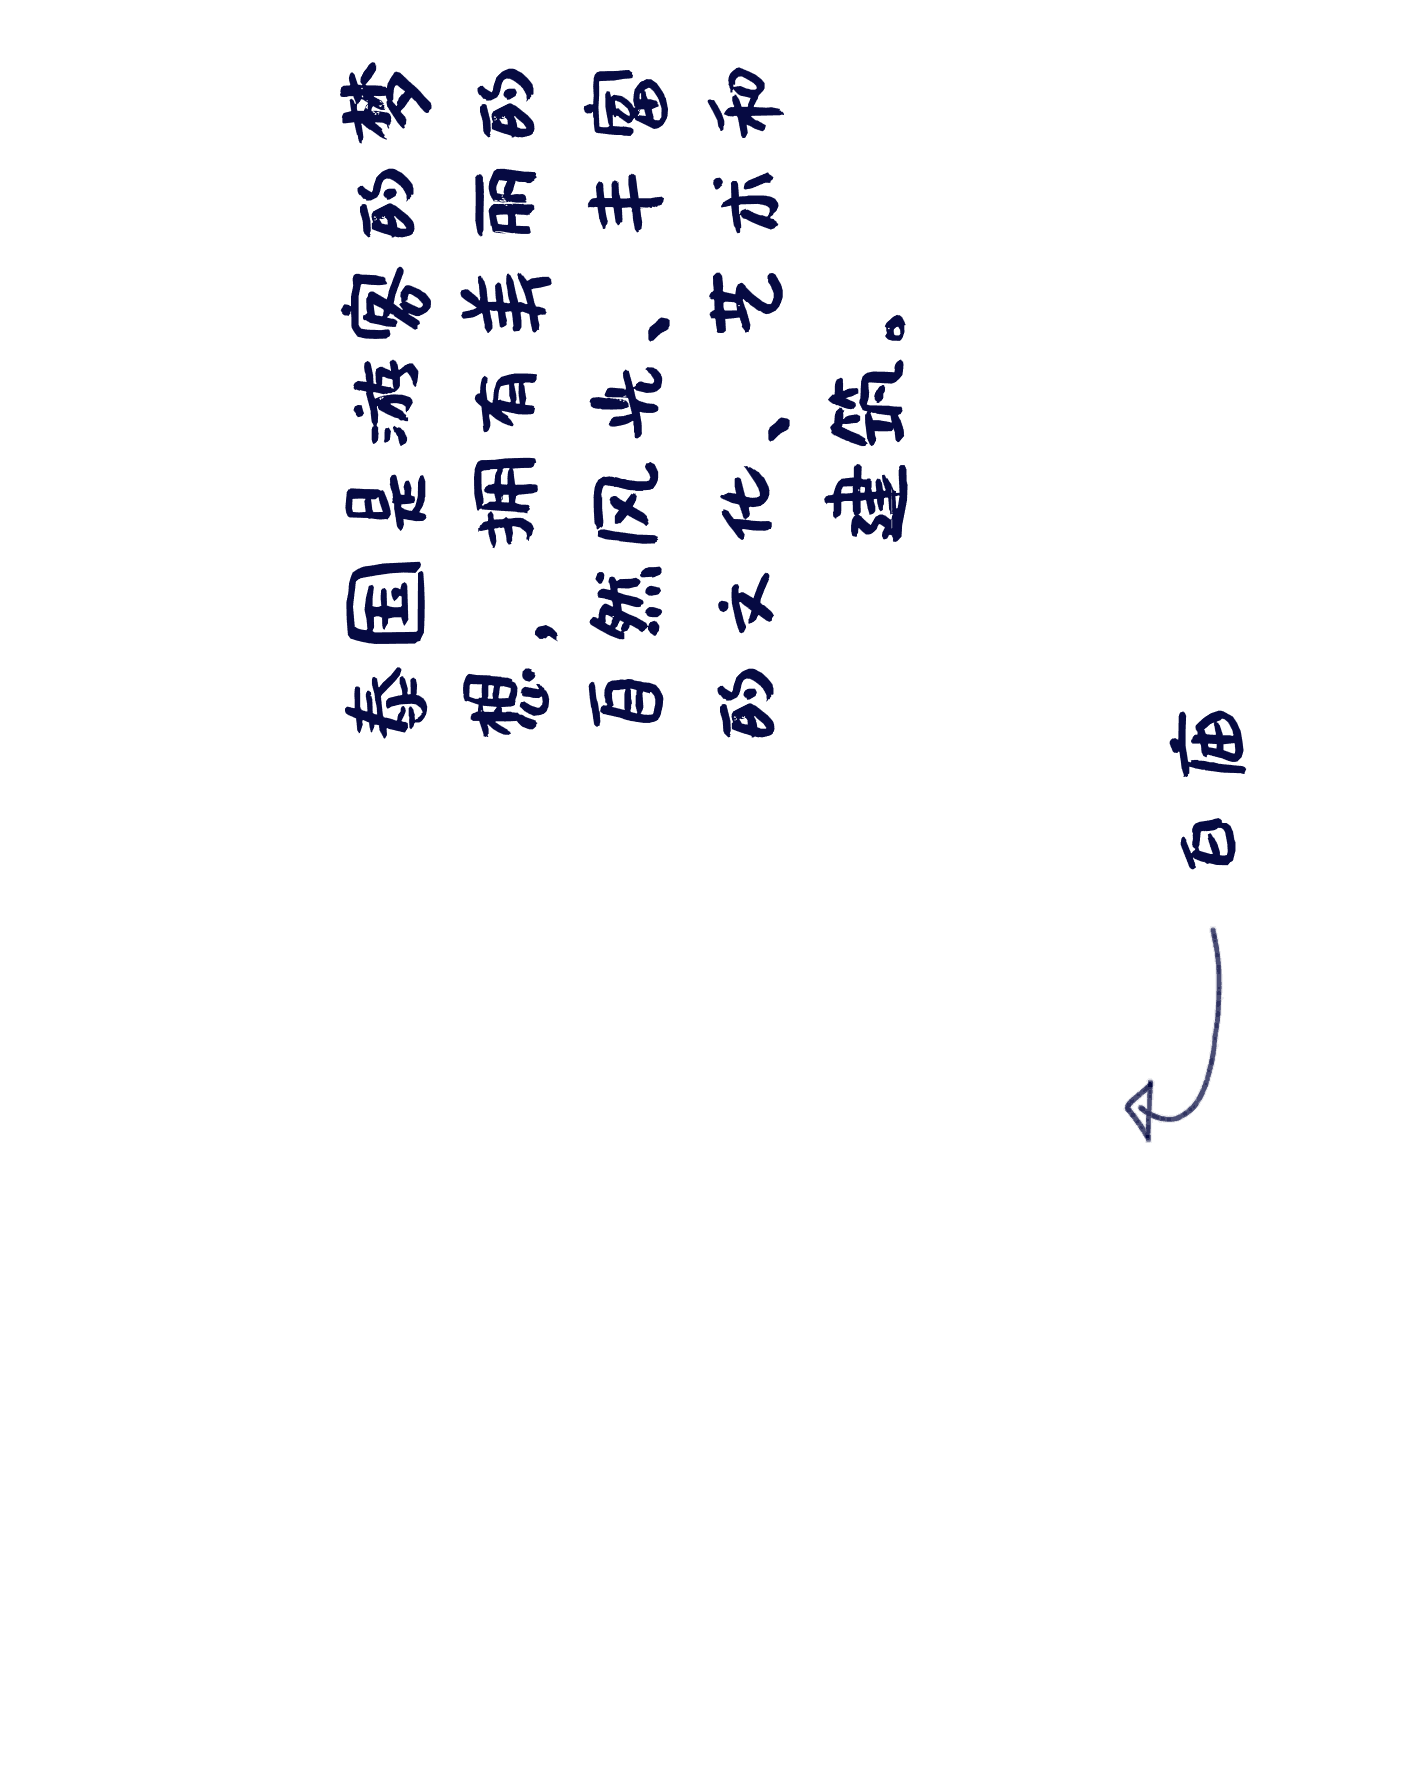 泰国是游客的梦
想，拥有美丽的
自然风光、丰富
的文化、艺术和
建筑。
白庙